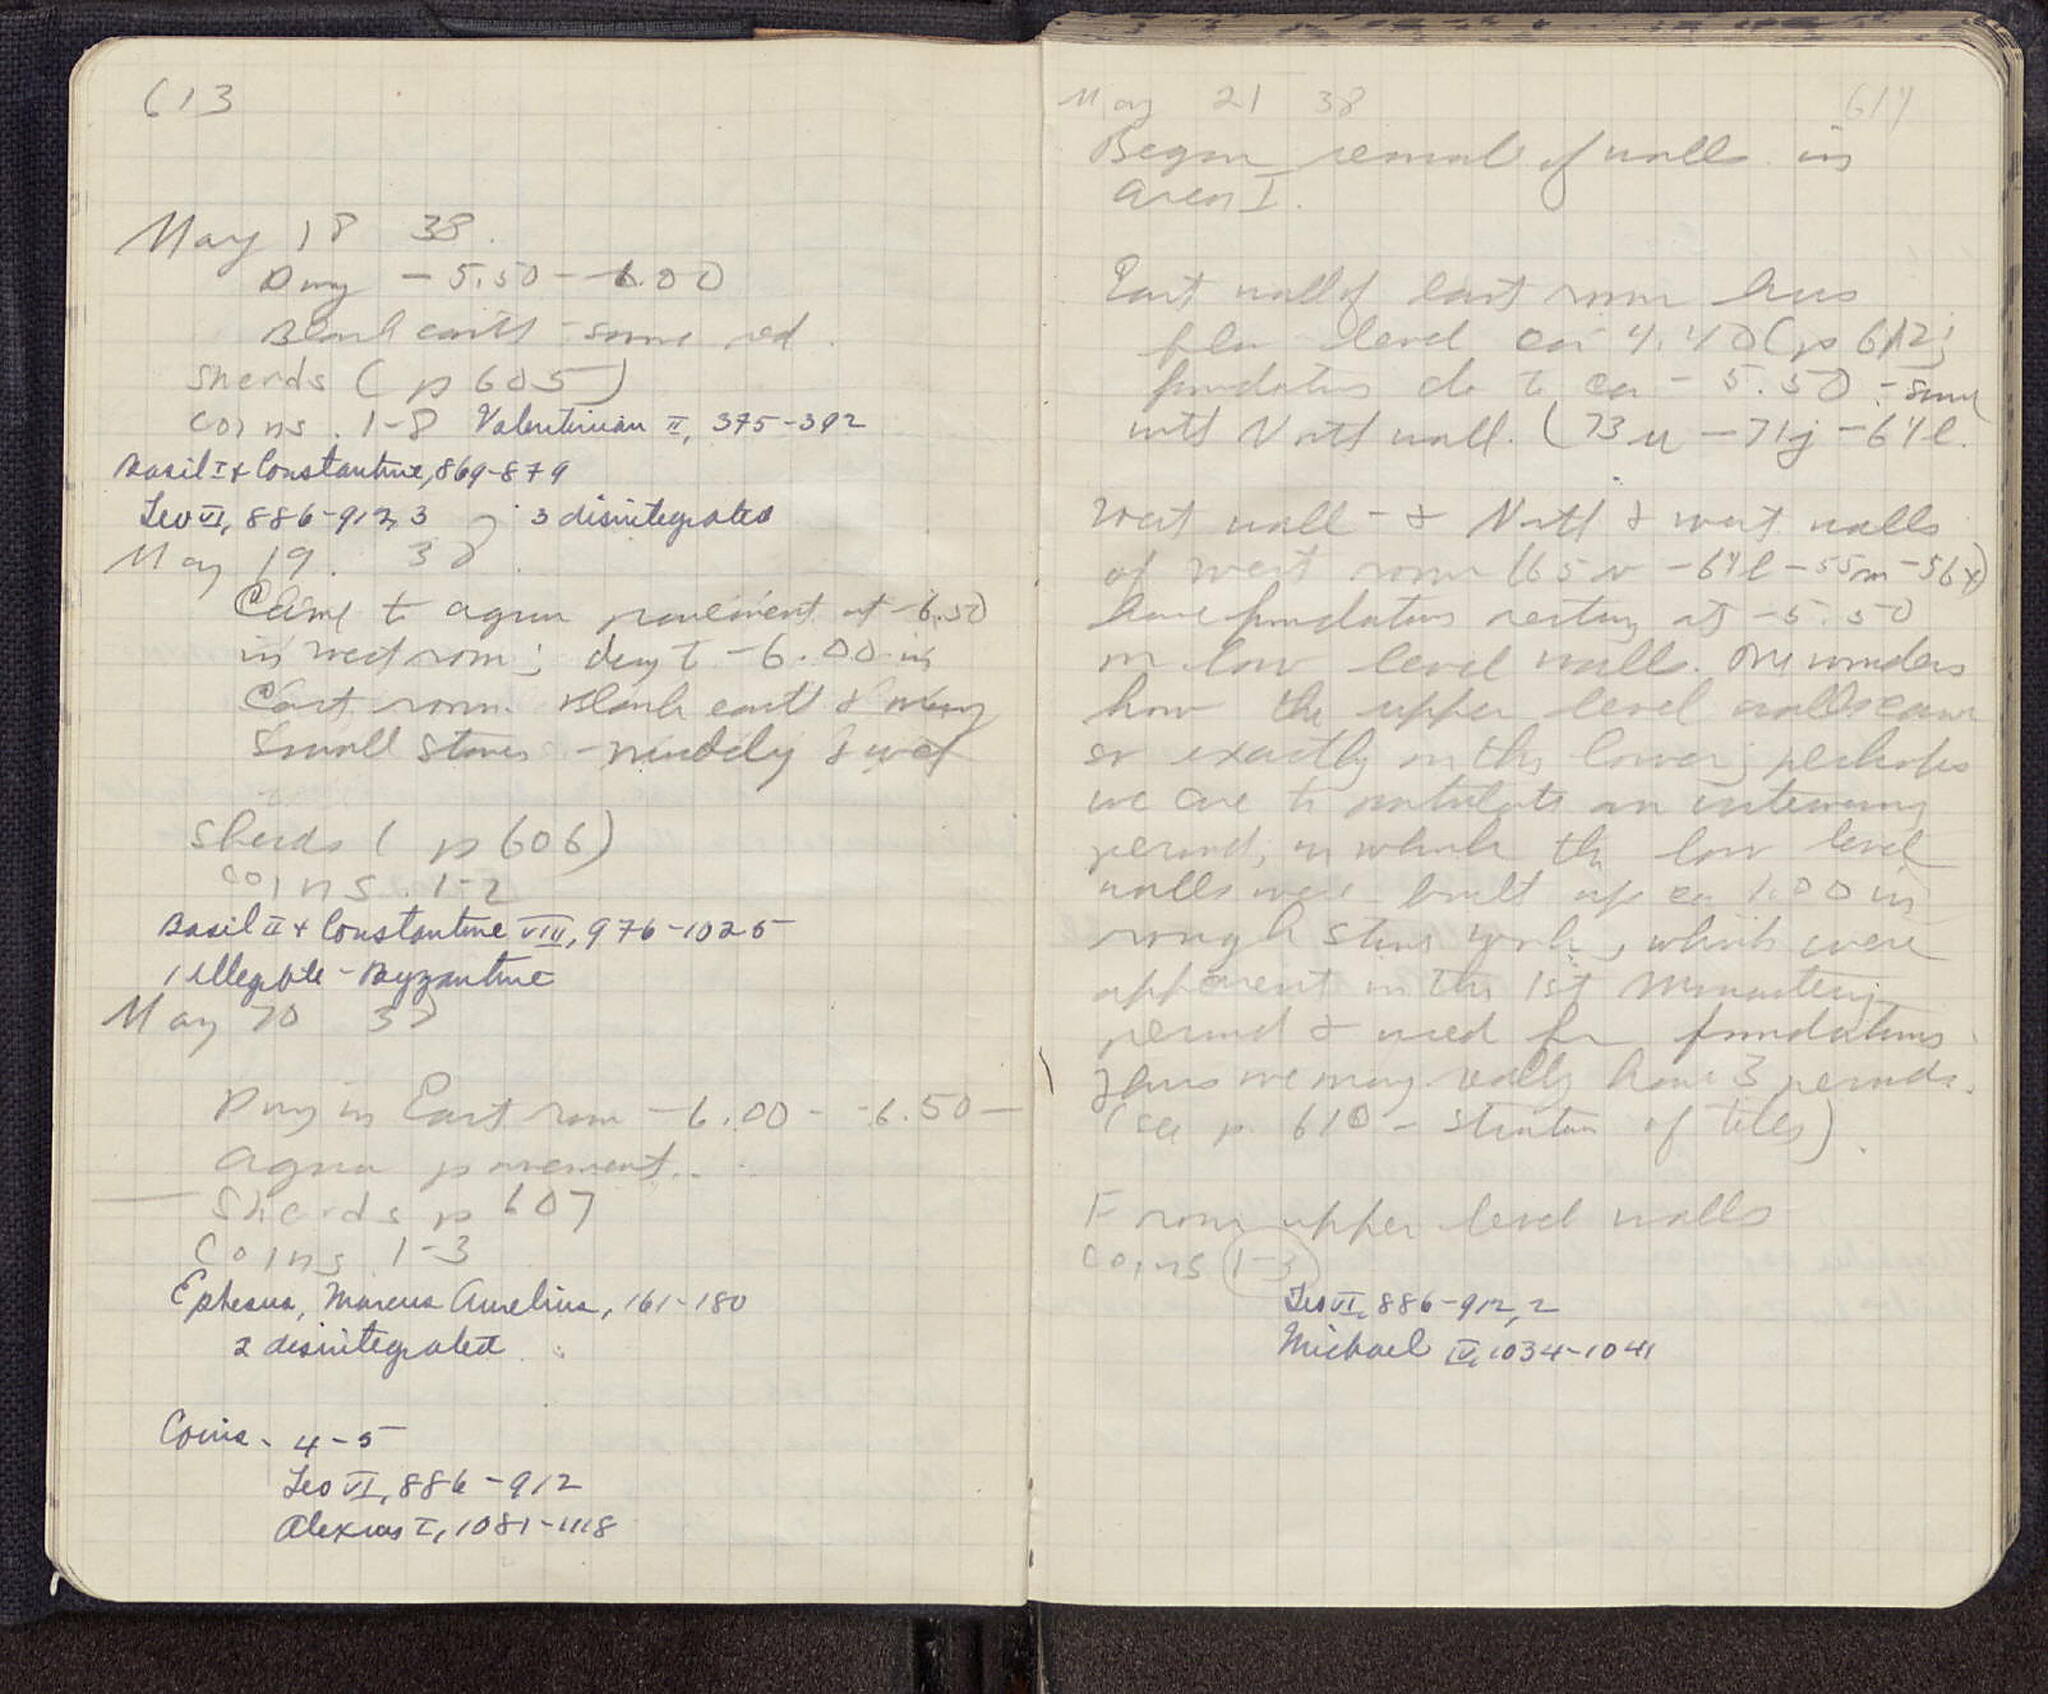 613
May 18 38.
Dug - 5.50 - -6.00
Black earth - some red.
sherds ( p 605 )
coins. 1-8 Valentinian II, 375-392
Basil I + Constantine, 869-879
Leo VI, 886-912, 3 ; 3 disintegrated
May 19. 38.
Came to agora pavement at -6.50
in west room; dug to -6.00 in
East room. Black earth & many
small stones - muddy & wet
Sherds ( p 606)
coins. 1-2
Basil II + Constantine VIII, 976-1025
1 illegible - Byzantine
May 20 38
Dug in East room -6.00 - -6.50 -
agora pavement.
Sherds p 607
Coins 1-3
Ephesus, Marcus Aurelius, 161-180
2 disintegrated
Coins - 4-5
Leo VI, 886-912
Alexius I, 1081-1118
May 21 38 614
Began removal of walls in
area I.
East wall of east room has
floor level ca 4.40 (p 612;
foundations do to ca - 5.50 - same
with North wall. (73 u - 71 j - 64 l.
West wall - & North & west walls
of west room (65 v - 64 l - 55 m - 56 x)
have foundations resting at -5.50
on low level walls. One wonders
how the upper level walls came
so exactly on the lower; perhaps
we are to postulate an intervening
period, in which the low level
walls were built up ca 1.00 in
rough stone work, which were
apparent in the 1st Monastery
period & used for foundations.
Thus we may really have 3 periods.
(see p. 610 - stratum of tiles).
From upper level walls
coins 1-3
Leo VI, 886-912, 2
Michael IV, 1034-1041